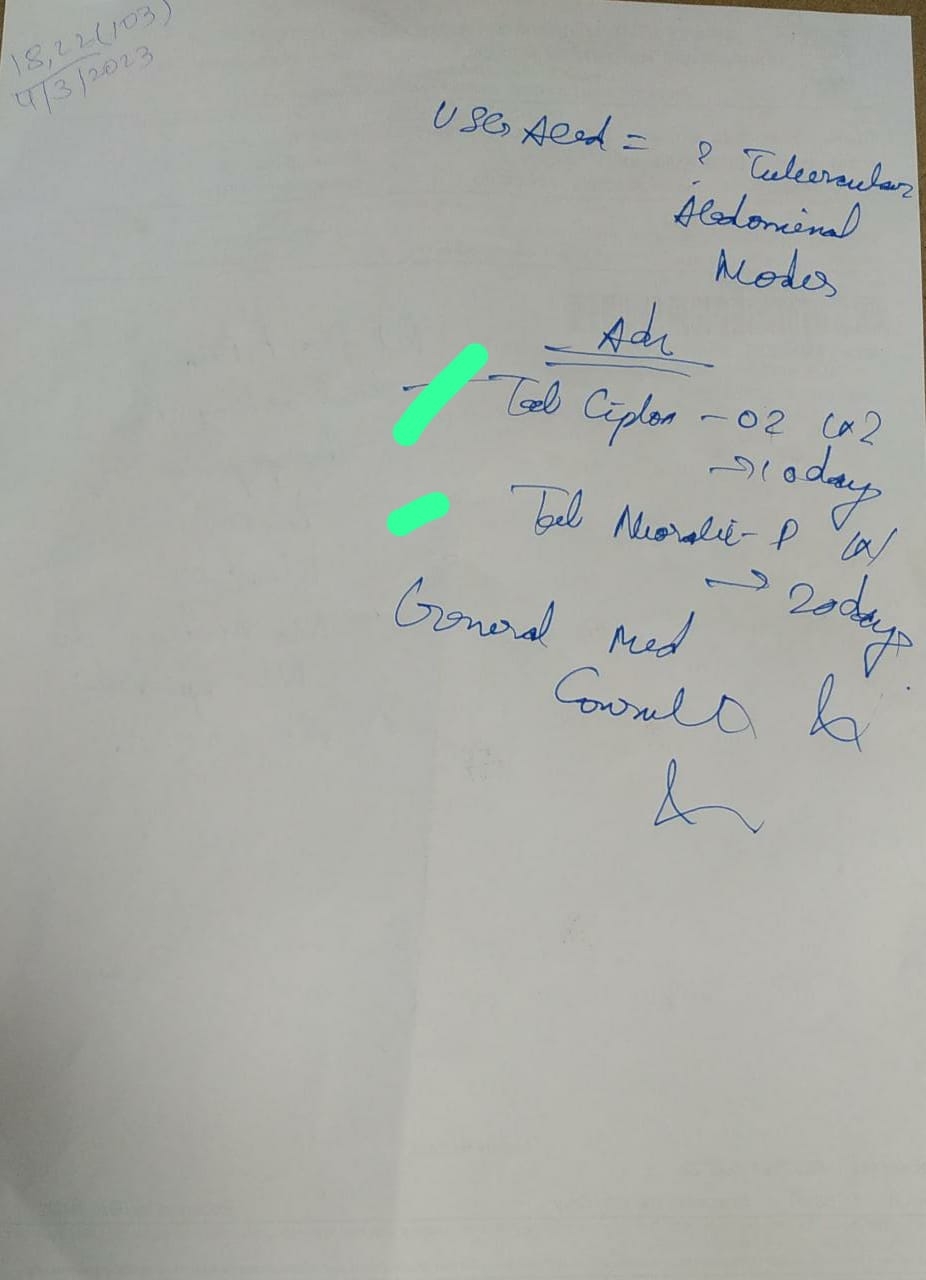 18,22(103)
4/3/2023
USG Abd = ? Tubercular
Abdominal
Nodes
Adv
- Tab Ciplox - OZ (x2
→ 10 day
Tab - P (x1
→ 20 days
General Med
Consult